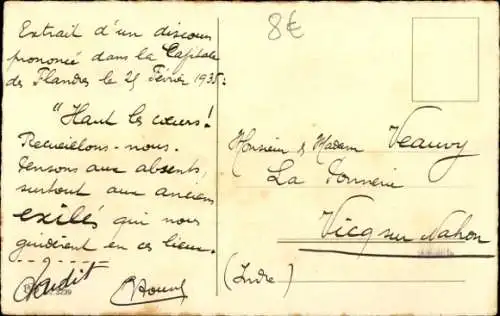 Extrait d'un discours
prononcé dans la Capitale
des Flandres le 25 Février 1935:
"Haut les cœurs!
Recueillons-nous.
Pensons aux absents,
surtout aux anciens
exilés qui nous
guidèrent en ces lieux.
8€
Monsieur & Madame Veauvy
La
Vicq sur Nahon
(Indre)